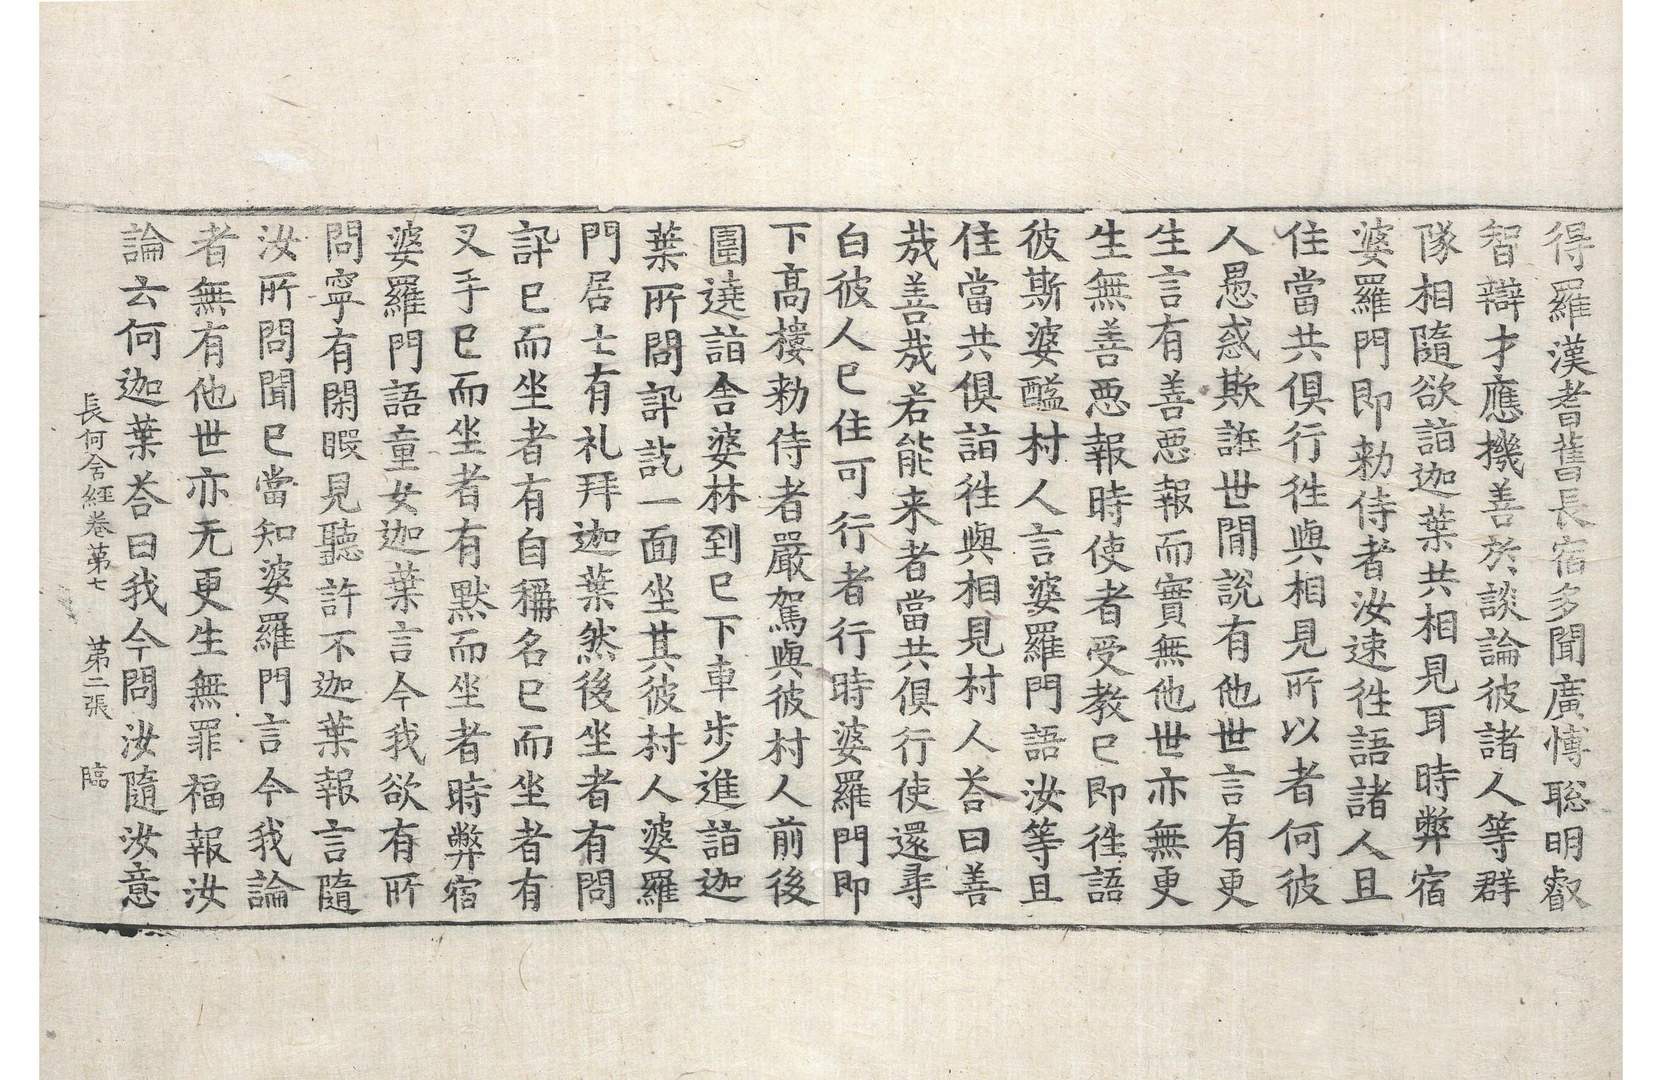 得羅漢耆舊長宿多聞廣博聡明叡
智辯才應機善於談論彼諸人等群
隊相隨欲詣迦葉共相見耳時弊宿
婆羅門即勑侍者汝速徃語諸人且
住當共俱行徃與相見所以者何彼
人愚惑欺誑世間說有他世言有更
生言有善惡報而實無他世亦無更
生無善惡報時使者受教已即徃語
彼斯婆醯村人言婆羅門語汝等且
住當共俱詣徃與相見村人荅曰善
哉善哉若能来者當共俱行使還尋
白彼人已住可行者行時婆羅門即
下高樓勑侍者嚴駕與彼村人前後
圍遶詣舍婆林到已下車步進詣迦
葉所問訊訖一面坐其彼村人婆羅
門居士有礼拜迦葉然後坐者有問
訊已而坐者有自稱名已而坐者有
叉手已而坐者有默而坐者時弊宿
婆羅門語童女迦葉言今我欲有所
問寧有閑暇見聽許不迦葉報言隨
汝所問聞已當知婆羅門言今我論
者無有他世亦无更生無罪福報汝
論云何迦葉荅曰我今問汝隨汝意
長阿含經卷第七 第二張 臨